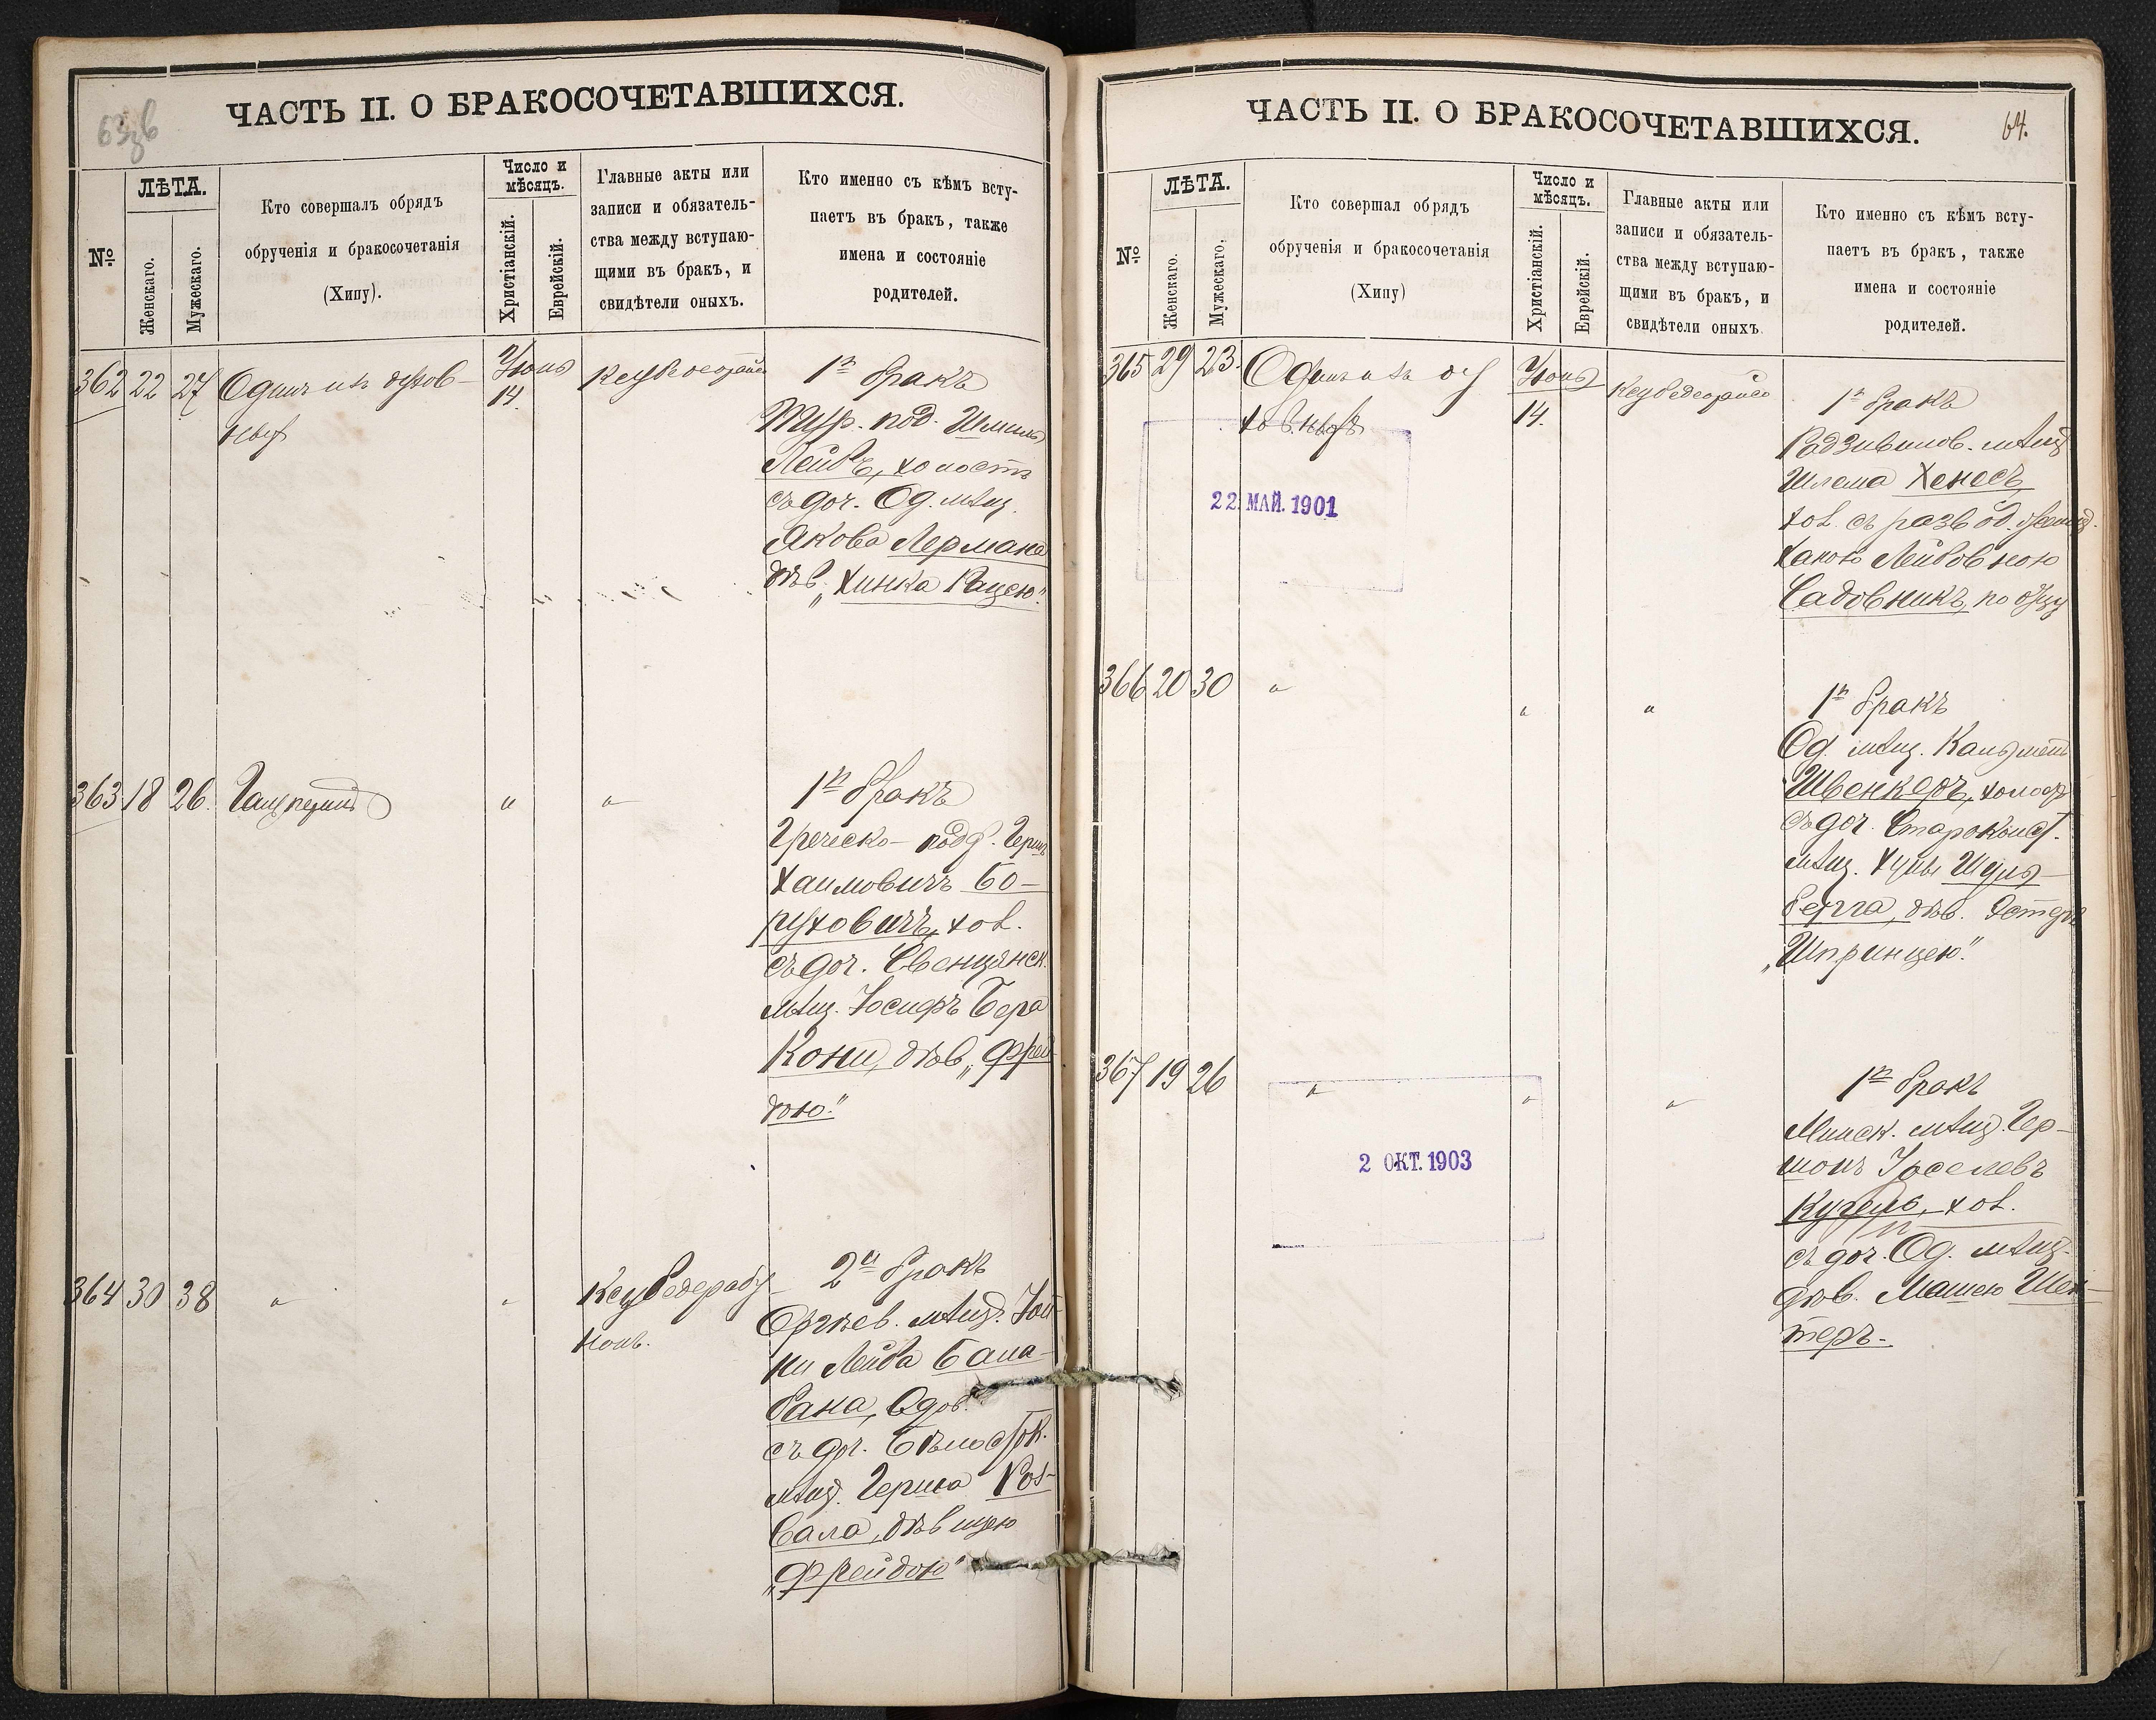 63об
ЧАСТЬ II. О БРАКОСОЧЕТАВШИХСЯ.
№
ЛѢТА.
Женскаго.
Мужескаго.
Кто совершалъ обрядъ
обрученія и бракосочетанія
(Хипу).
Число и
мѣсяцъ.
Христіанскій.
Еврейскій.
Главные акты или
записи и обязатель-
ства между вступаю-
щими въ бракъ, и
свидѣтели оныхъ.
Кто именно съ кѣмъ всту-
паетъ въ бракъ, также
имена и состояніе
родителей.
362 22 27 Одинъ изъ духов-
ныхъ
Іюня
14.
1й бракъ
Тур. под. Шмиль
Лейбъ, холостъ
съ доч. Од. мѣщ.
Якова Лермана
дѣв. „Хинка Рацею."
363 18 26. Гальперинъ
" "
1й бракъ
Греческо-подд. Герш
Хаимовичъ Бо-
руховичъ, хол.
съ доч. Свенцянск.
мѣщ. Іосифъ Бера
Кони, дѣв. „Фрей
дою."
364 30 38 " "
2й бракъ
Оргѣев. мѣщ.
Лейба Бала-
бана, вдов.
съ доч. Бѣлосток.
мѣщ. Герша Роз-
вала, дѣвицею
„Фрейдою"
64.
ЧАСТЬ II. О БРАКОСОЧЕТАВШИХСЯ.
№
ЛѢТА.
Женскаго.
Мужескаго.
Кто совершал обрядъ
обрученія и бракосочетанія
(Хипу)
Число и
мѣсяцъ.
Христіанскій.
Еврейскій.
Главные акты или
записи и обязатель-
ства между вступаю-
щими въ бракъ, и
свидѣтели оныхъ.
Кто именно съ кѣмъ всту-
паетъ въ бракъ, также
имена и состояніе
родителей.
365 29 23. Одинъ изъ ду
ховныхъ
Іюня
14.
22 МАЙ. 1901
1й бракъ
Радзивилов. мѣщ
Шлема Хенесъ,
хол. съ развод.
Ханою Лейбовною
Садовникъ, по отцу
366 20 30 " " "
1й бракъ
Од. мѣщ. Кальмен
Швенкеръ, холост
съ доч. Староконст.
мѣщ. Хуны Шуль-
берга, дѣв. Эстеръ
„Шпринцею."
367 19 26 " " "
2 ОКТ. 1903
1й бракъ
Минск. мѣщ. Гер-
шонъ Іоселевъ
Кугель, хол.
съ доч. Од. мѣщ.
дѣв. Машею Шех-
теръ.